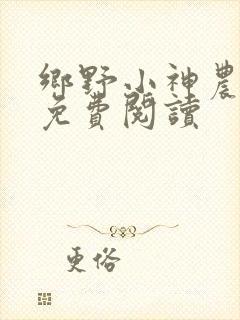 鄉野小神農
免費閱讀
更俗